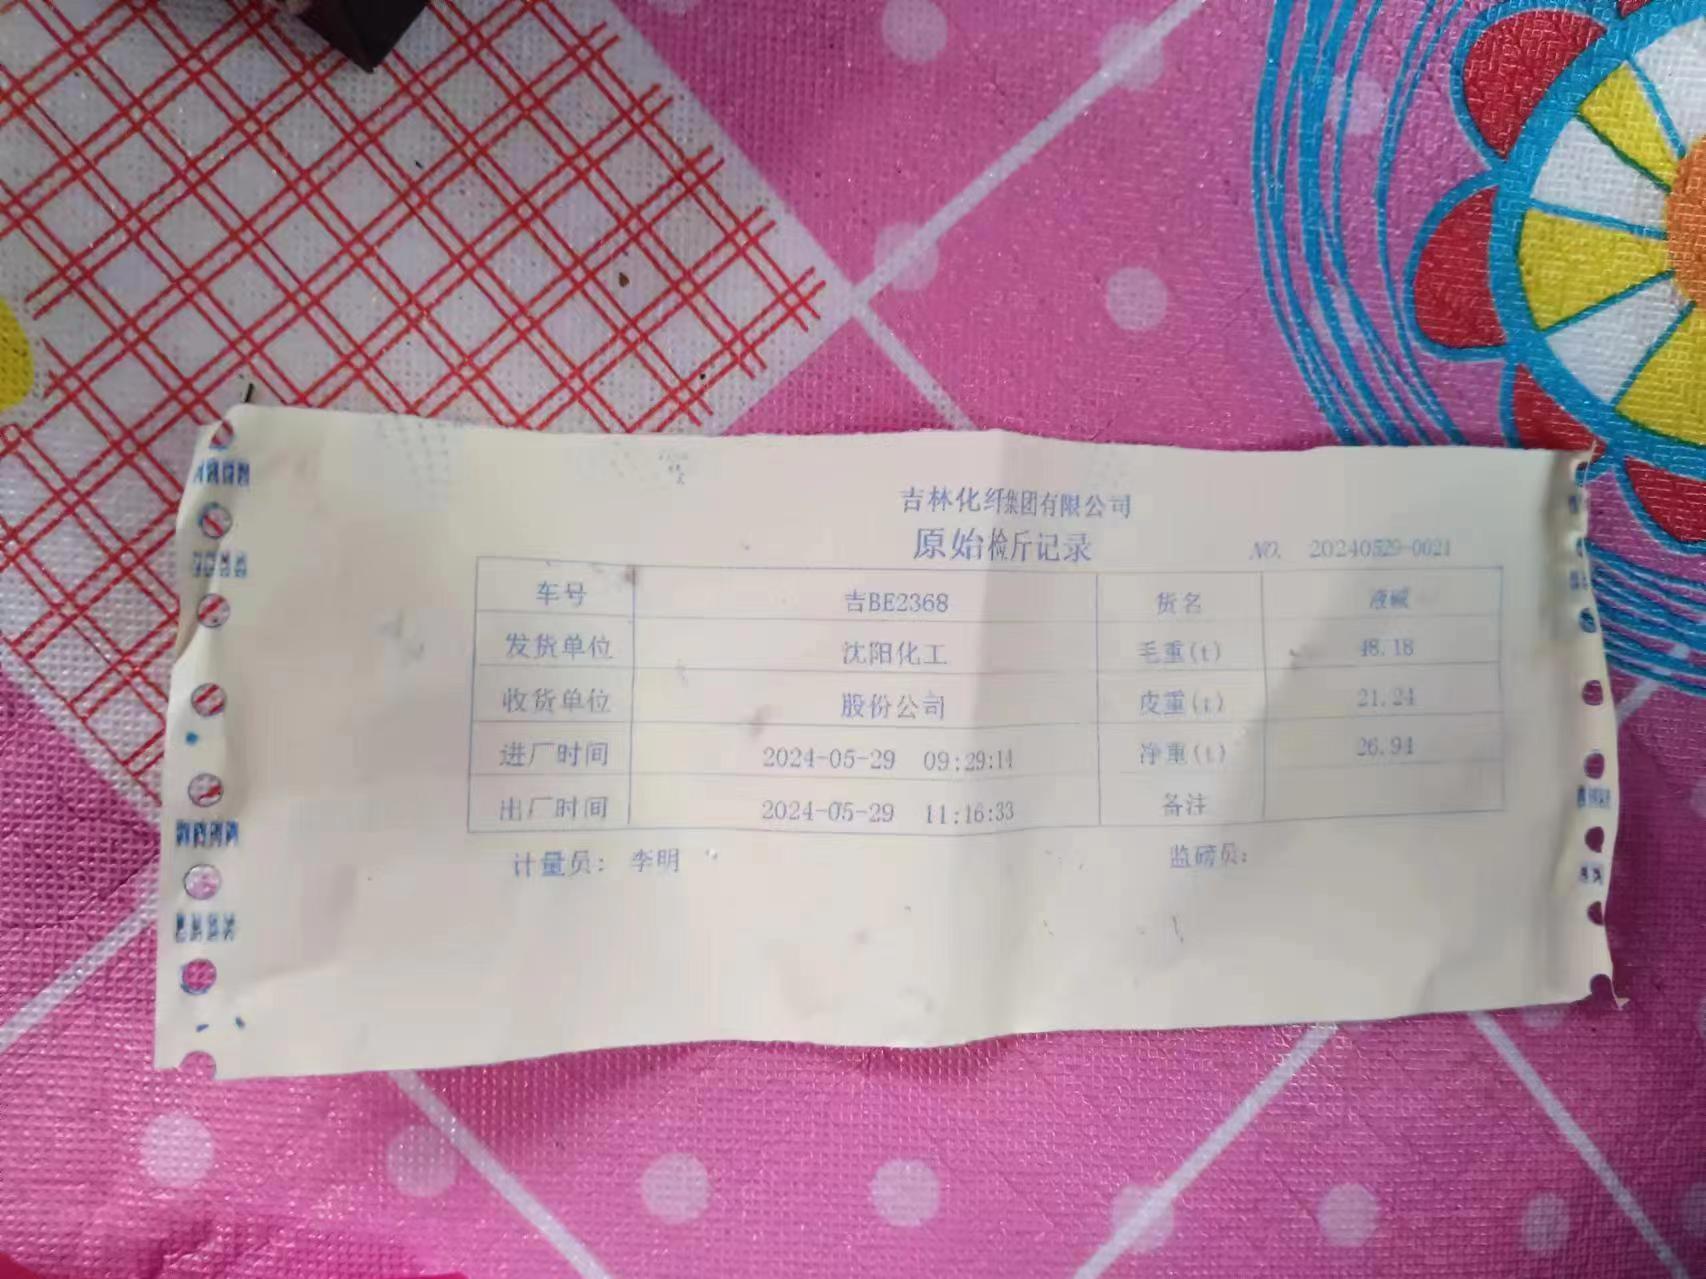 吉林化纤集团有限公司
原始检斤记录
NO. 20240529-0021
车号 吉BE2368 货名 液碱
发货单位 沈阳化工 毛重(t) 48.18
收货单位 股份公司 皮重(t) 21.24
进厂时间 2024-05-29 09:29:14 净重(t) 26.94
出厂时间 2024-05-29 11:16:33 备注
计量员: 李明 监磅员: